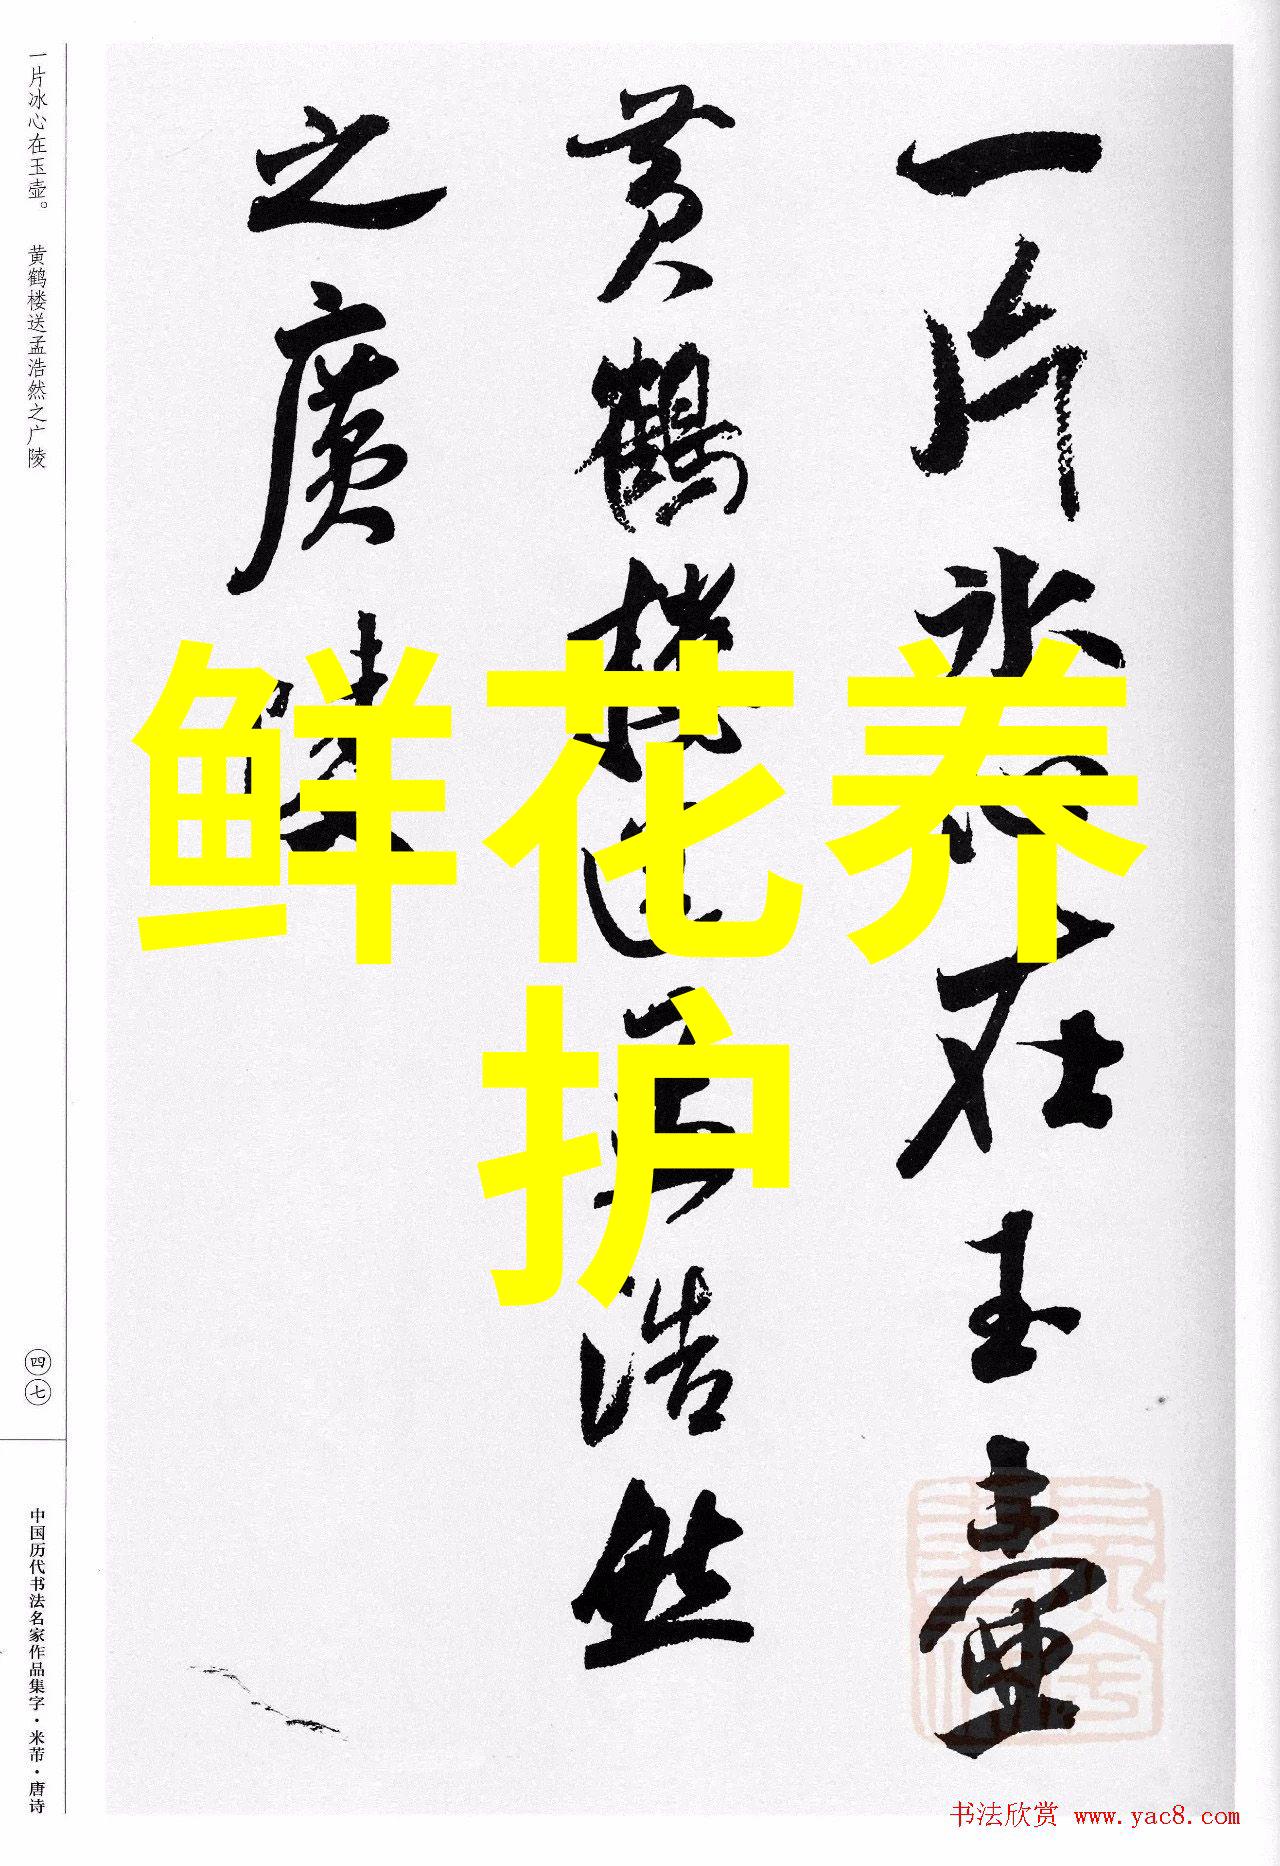 一片冰心在玉壶
黄鹤楼送孟浩然
之廣陵
鲜花养
护
一片冰心在玉壶。 黄鹤楼送孟浩然之广陵
四七
中国历代书法名家作品集字·米芾·唐诗
书法欣赏 www.yac8.com